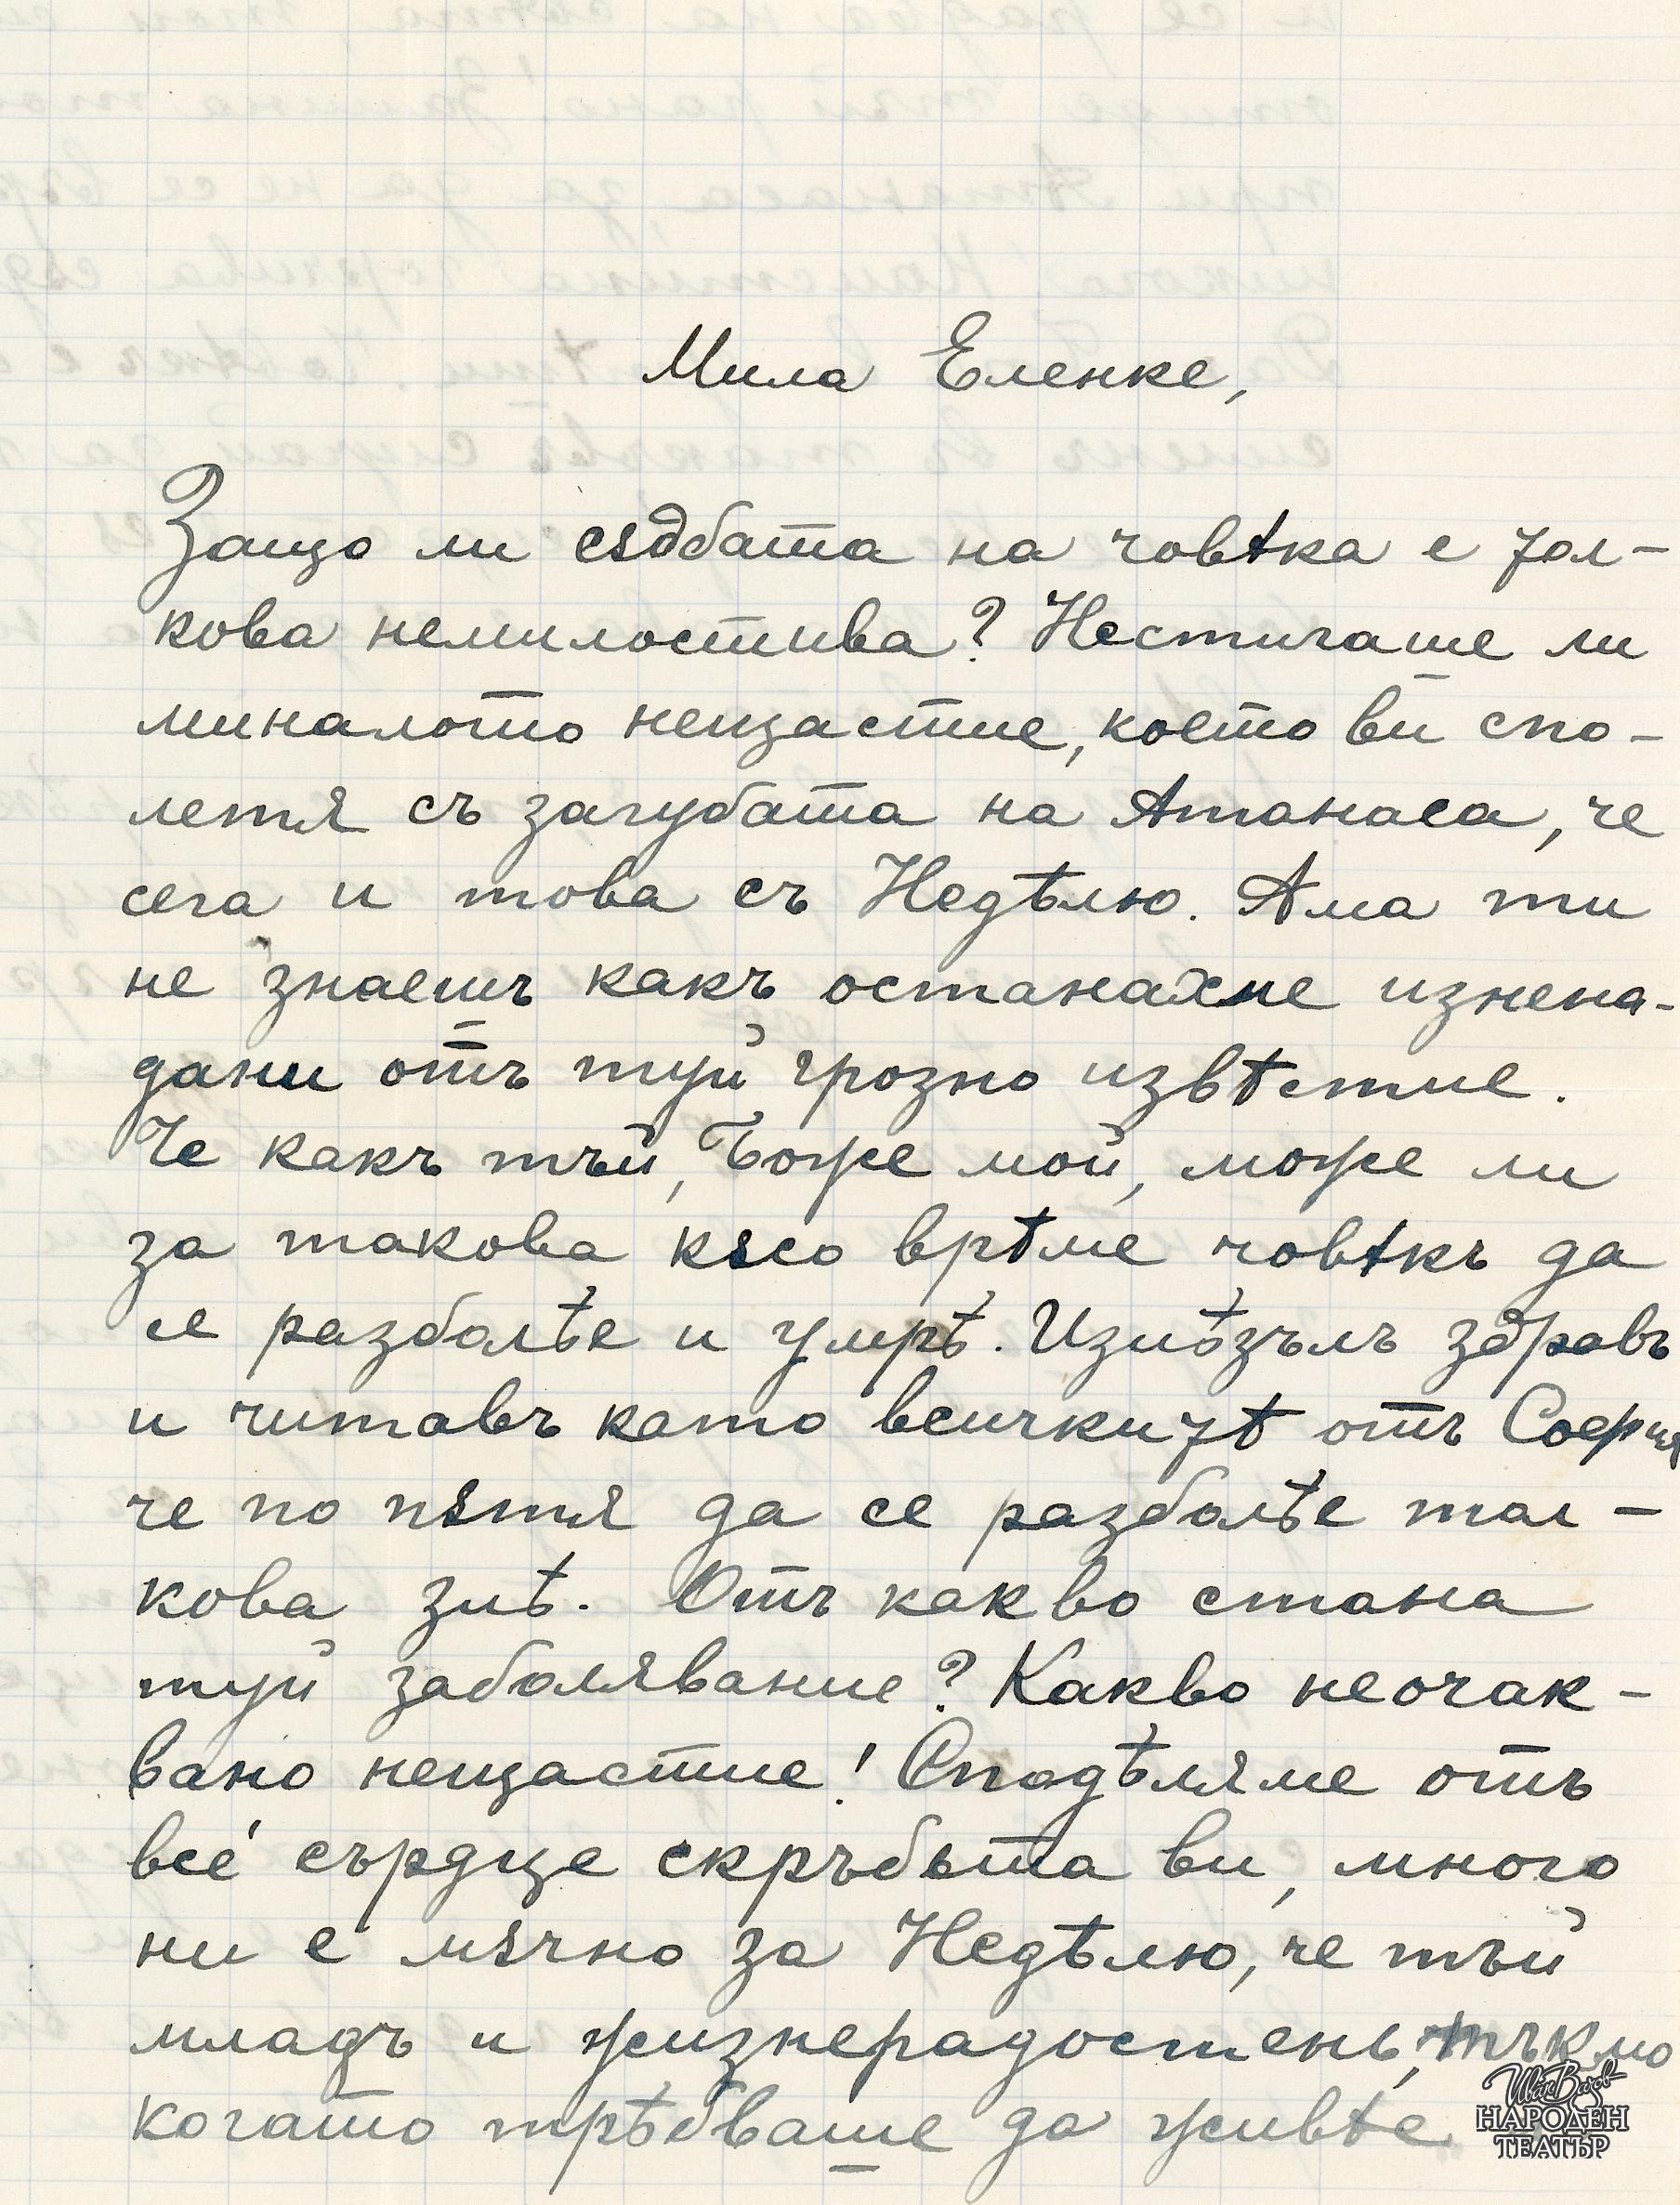 Мила Еленке,
Защо ли сѫдбата на човѣка е тол-
кова немилостива? Нестигаше ли
миналото нещастие, което ви спо-
летя съ загубата на Атанаса, че
сега и това съ Недѣлю. Ама ти
не знаешъ какъ останахме изнена-
дани отъ туй грозно извѣстие.
Че какъ тъй, Боже мой, може ли
за такова кѫсо врѣме човѣкъ да
се разболѣе и умрѣ. Излѣзълъ здравъ
и читавъ като всичкитѣ отъ София
че по пѫтя да се разболѣе тол-
кова злѣ. Отъ какво стана
туй заболявание? Какво неочак-
вано нещастие! Споделѣяме отъ
все сърдце скръбьта ви, много
ни е мѫчно за Недѣлю, че тъй
младъ и жизнерадостенъ, тъкмо
когато трѣбваше да живѣе
Иван Вазов
НАРОДЕН
ТЕАТЪР